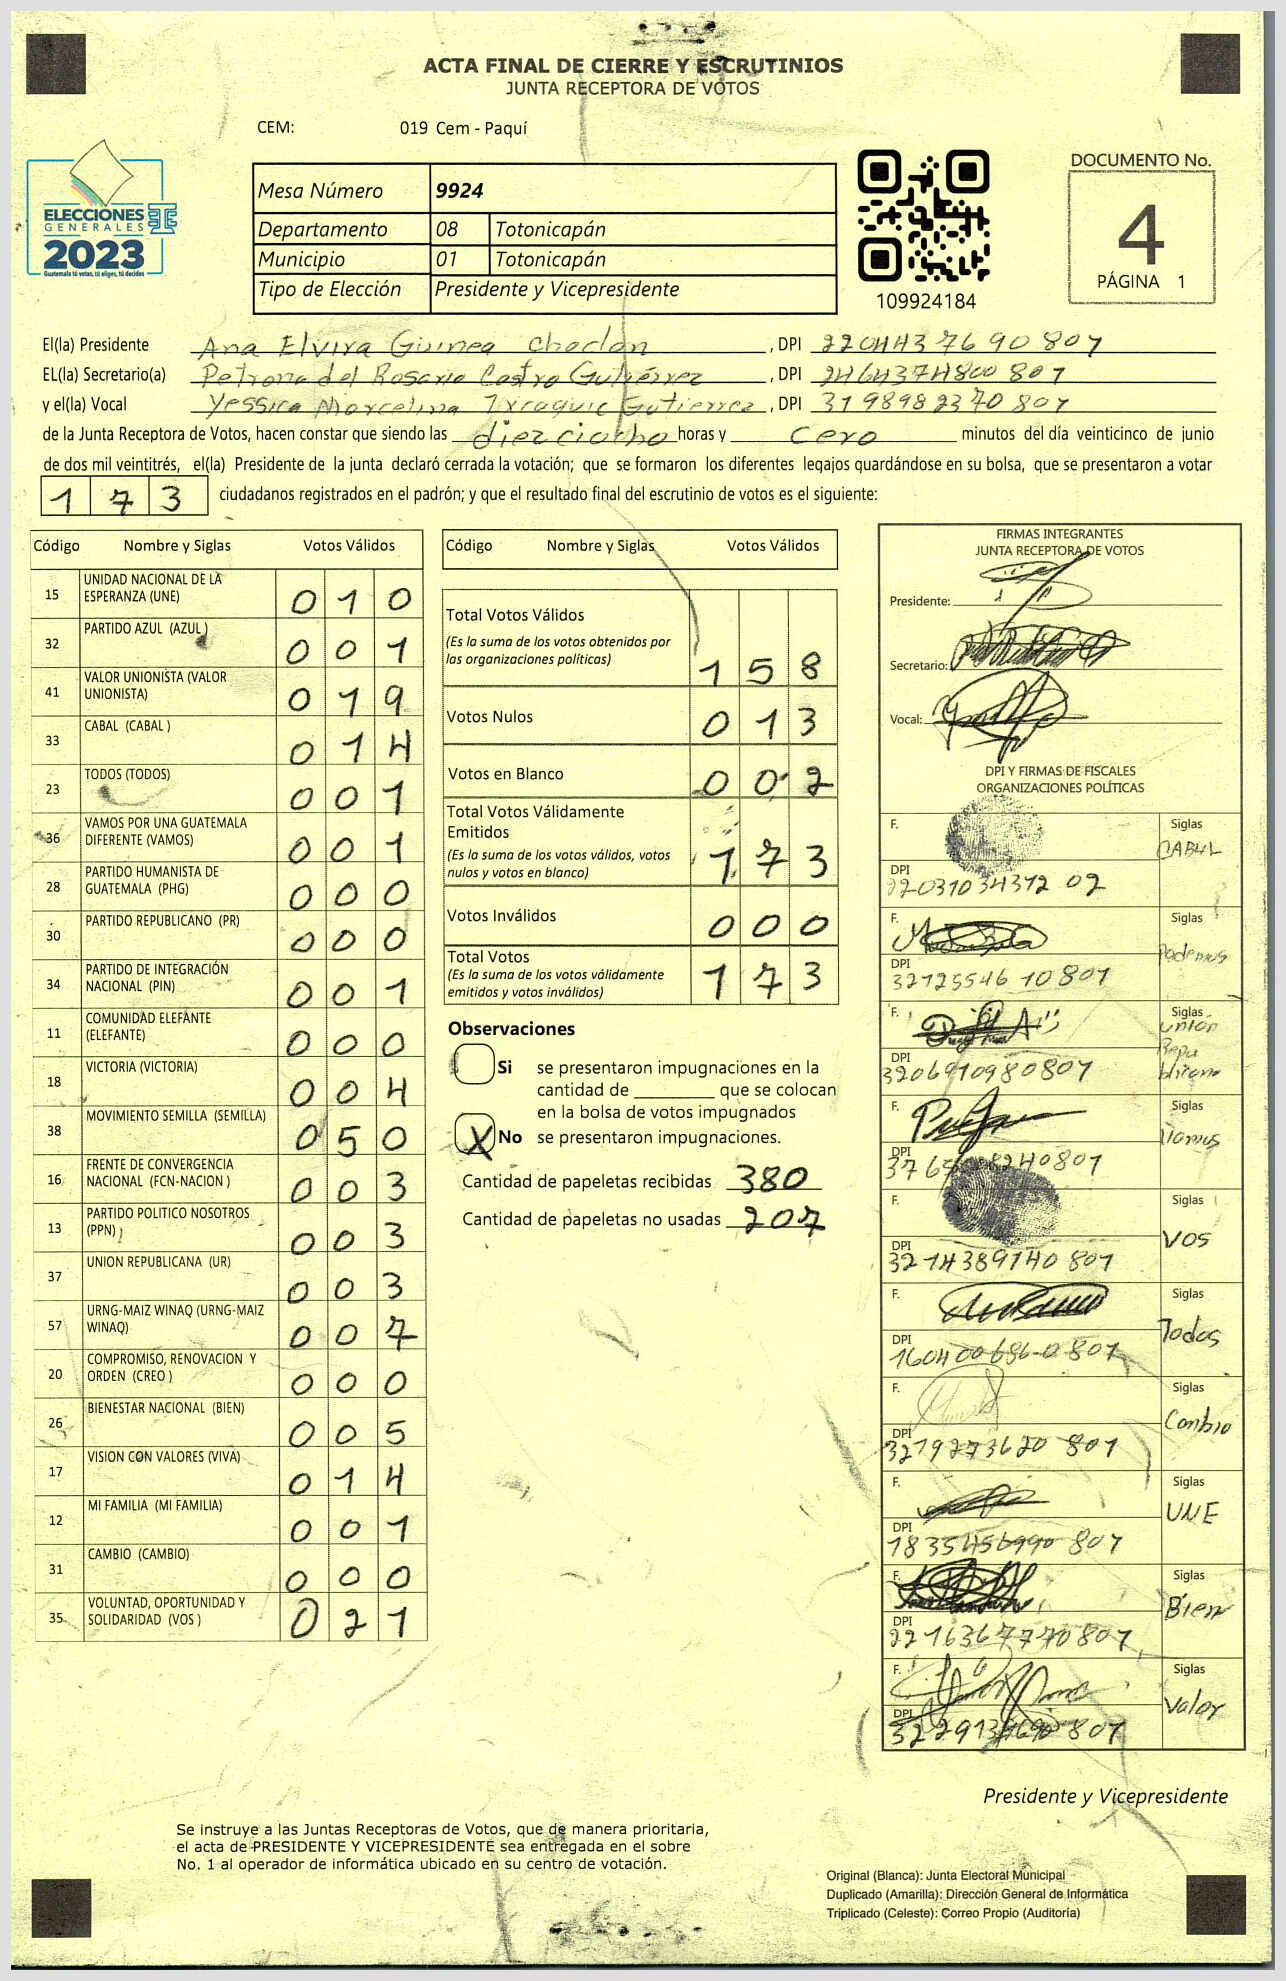 ACTA FINAL DE CIERRE Y ESCRUTINIOS
JUNTA RECEPTORA DE VOTOS
CEM: 019 Cem - Paquí
ELECCIONES
GENERALES
2023
Guatemala tú votas, tú eliges, tú decides
Mesa Número 9924
Departamento 08 Totonicapán
Municipio 01 Totonicapán
Tipo de Elección Presidente y Vicepresidente
109924184
DOCUMENTO No.
4
PÁGINA 1
El(la) Presidente Ana Elvira Guinea Choclan , DPI 2204437690801
EL(la) Secretario(a) Petrona del Rosario Castro Gutiérrez , DPI 2464374800801
y el(la) Vocal Yessica Marcelina Ixcaquic Gutierrez , DPI 3198982370801
de la Junta Receptora de Votos, hacen constar que siendo las dieziocho horas y cero minutos del día veinticinco de junio
de dos mil veintitrés, el(la) Presidente de la junta declaró cerrada la votación; que se formaron los diferentes legajos quardándose en su bolsa, que se presentaron a votar
173 ciudadanos registrados en el padrón; y que el resultado final del escrutinio de votos es el siguiente:
Código Nombre y Siglas Votos Válidos
15 UNIDAD NACIONAL DE LA ESPERANZA (UNE) 010
32 PARTIDO AZUL (AZUL) 001
41 VALOR UNIONISTA (VALOR UNIONISTA) 019
33 CABAL (CABAL ) 014
23 TODOS (TODOS) 001
36 VAMOS POR UNA GUATEMALA DIFERENTE (VAMOS) 001
28 PARTIDO HUMANISTA DE GUATEMALA (PHG) 000
30 PARTIDO REPUBLICANO (PR) 000
34 PARTIDO DE INTEGRACIÓN NACIONAL (PIN) 001
11 COMUNIDAD ELEFANTE (ELEFANTE) 000
18 VICTORIA (VICTORIA) 004
38 MOVIMIENTO SEMILLA (SEMILLA) 050
16 FRENTE DE CONVERGENCIA NACIONAL (FCN-NACION ) 003
13 PARTIDO POLITICO NOSOTROS (PPN) 003
37 UNION REPUBLICANA (UR) 003
57 URNG-MAIZ WINAQ (URNG-MAIZ WINAQ) 007
20 COMPROMISO, RENOVACION Y ORDEN (CREO ) 000
26 BIENESTAR NACIONAL (BIEN) 005
17 VISION CON VALORES (VIVA) 014
12 MI FAMILIA (MI FAMILIA) 001
31 CAMBIO (CAMBIO) 000
35 VOLUNTAD, OPORTUNIDAD Y SOLIDARIDAD (VOS ) 021
Código Nombre y Siglas Votos Válidos
Total Votos Válidos
(Es la suma de los votos obtenidos por
las organizaciones políticas) 158
Votos Nulos 013
Votos en Blanco 002
Total Votos Válidamente
Emitidos
(Es la suma de los votos válidos, votos
nulos y votos en blanco) 173
Votos Inválidos 000
Total Votos
(Es la suma de los votos válidamente
emitidos y votos inválidos) 173
Observaciones
Si se presentaron impugnaciones en la
cantidad de ________ que se colocan
en la bolsa de votos impugnados
X No se presentaron impugnaciones.
Cantidad de papeletas recibidas 380
Cantidad de papeletas no usadas 207
FIRMAS INTEGRANTES
JUNTA RECEPTORA DE VOTOS
Presidente:
Secretario:
Vocal:
DPI Y FIRMAS DE FISCALES
ORGANIZACIONES POLÍTICAS
F. Siglas CABAL
DPI 2203103431202
F. Siglas Podemos
DPI 3212554610801
F. Siglas Unión Repu blicana
DPI 3206910980801
F. Siglas Vamos
DPI
F. Siglas VOS
DPI 3214389140801
F. Siglas Todos
DPI 1604006860801
F. Siglas Cambio
DPI 3219273620801
F. Siglas UNE
DPI 1835456990801
F. Siglas Bien
DPI 2216367770801
F. Siglas Valor
DPI
Presidente y Vicepresidente
Se instruye a las Juntas Receptoras de Votos, que de manera prioritaria,
el acta de PRESIDENTE Y VICEPRESIDENTE sea entregada en el sobre
No. 1 al operador de informática ubicado en su centro de votación.
Original (Blanca): Junta Electoral Municipal
Duplicado (Amarilla): Dirección General de Informática
Triplicado (Celeste): Correo Propio (Auditoría)